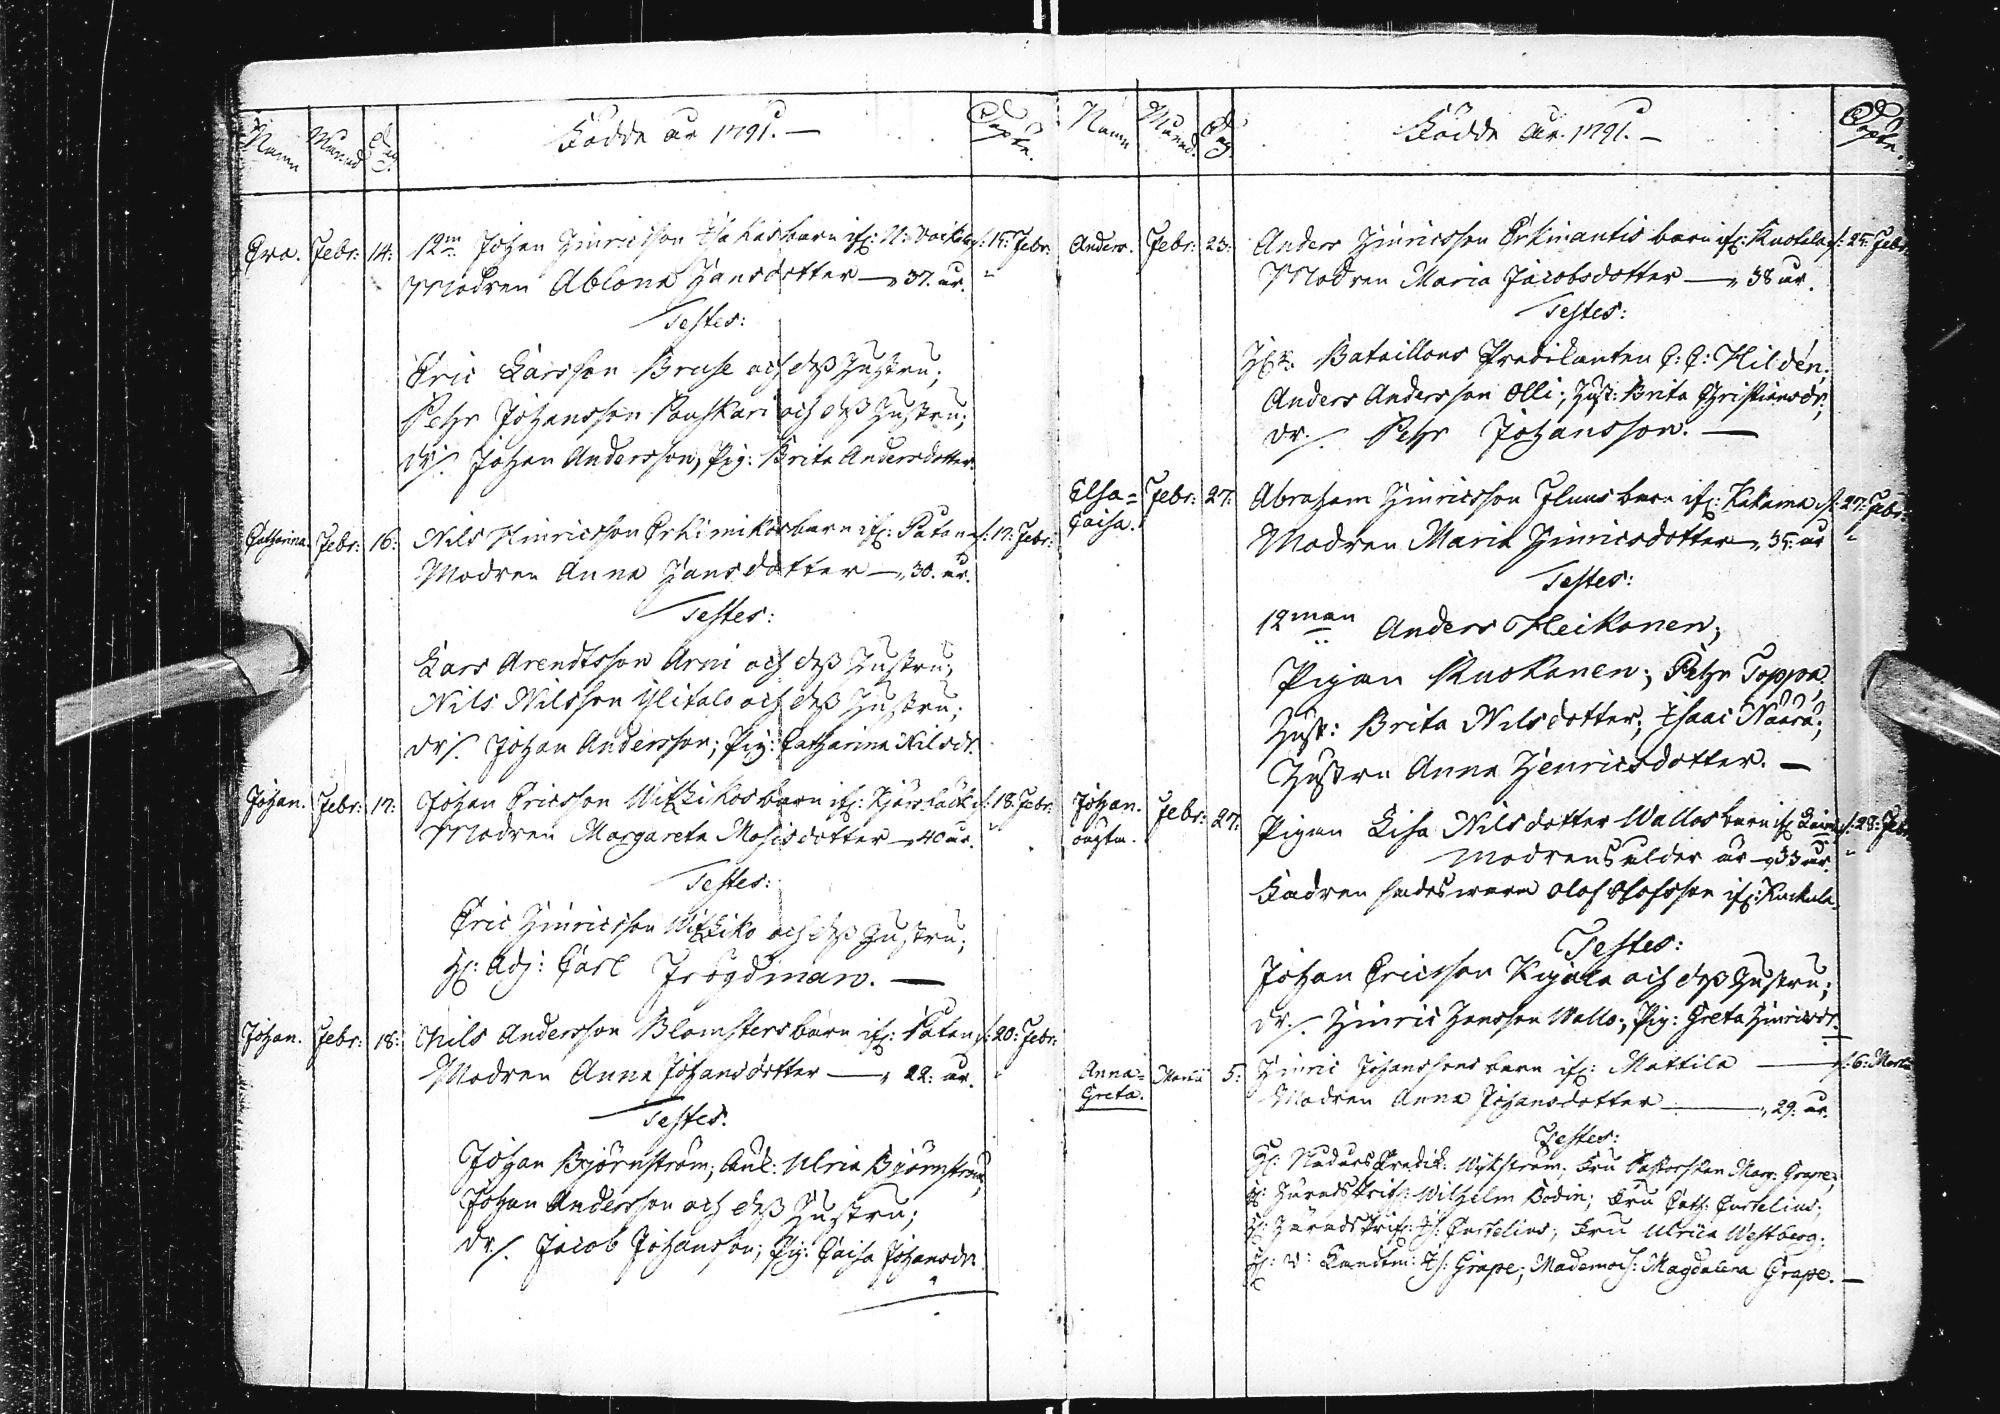 Namn Månad Dag. Födde år 1791. — Döpte.
Eva. Febr: 14: 12m Johan Hinricsson Isakas barn if: N: Voikala d: 15: Febr:
Modren Ablona Hansdotter — 37. år.
Testes:
Eric Larsson Bruse och dess Hustru;
Pehr Johansson Pouskari och dess Hustru;
dr/. Johan Andersson, Pig: Brita Andersdotter
Catharina. Febr: 16: Nils Hinricsson Erkimikos barn if: Patana d: 17: Febr:
Modren Anna Hansdotter — 30. år.
Testes:
Lars Arendtsson Arni och dess Hustru;
Nils Nilsson Ylitalo och dess Hustru;
dr/. Johan Andersson; Pig: Catharina Nilsdr.
Johan. Febr: 17: Johan Ericsson Witzikos barn if: d: 18. Febr:
Modren Margareta Mosisdotter — 40 år.
Testes:
Eric Hinricsson Witziko och dess Hustru;
H: Adj: Carl Frögdman. —
Johan. Febr: 18: Nils Andersson Blomsters barn if: Patan d: 20: Febr:
Modren Anna Johansdotter — 22: år.
Testes.
Johan Björnström; Ulrica Björnström;
Johan Andersson och dess Hustru;
dr/. Jacob Johansson; Pig: Caisa Johansdr.
Namn Månad. Dag. Födde år. 1791. — Döpte.
Anders. Febr: 23: Anders Hinricsson Erkinantis barn if: Kuckula d: 25: Febr:
Modren Maria Jacobsdotter — 38 år.
Testes:
Hr. Bataillons Predikanten C: C: Hildén.
Anders Andersson Olli; Hust: Brita Christiansdr;
dr./. Pehr Johansson. —
Elsa= Febr: 27: Abraham Hinricsson barn if: Kakama d: 27: Febr:
Caisa. Modren Maria Hinricsdotter — 35: år
Testes:
12man Anders Heikonen;
Pigan Kuskanen; Pehr Toppa.
Hust: Brita Nilsdotter; Isaac Näärä;
Hustru Anna Henricsdotter. —
Johan. Febr: 27: Pigan Lisa Nilsdotter Wallos barn if d: 28: Febr
oägta. Modrens ålder är — 33 år.
Fadren Olof Olofsson if: Kuckula.
Testes:
Johan Ericsson och dess Hustru;
dr./. Hinric Hansson Wallo; Pig: Greta Hinricsdr.
Anna= Martii 5: Hinric Johanssons barn if: Mattila — d: 6: Martii
Greta. Modren Anna Johansdotter — 29. år.
Testes:
H: Predik: Wykström; Fru Pastorskan Marg: Grape;
H: Häradsskrif: Wilhelm Bodin; Fru Cath: Curtelius;
H: Häradsskrif: Is: Curtelius; Fru Ulrica Westberg;
H: Is: Grape; Mademois: Magdalena Grape. —